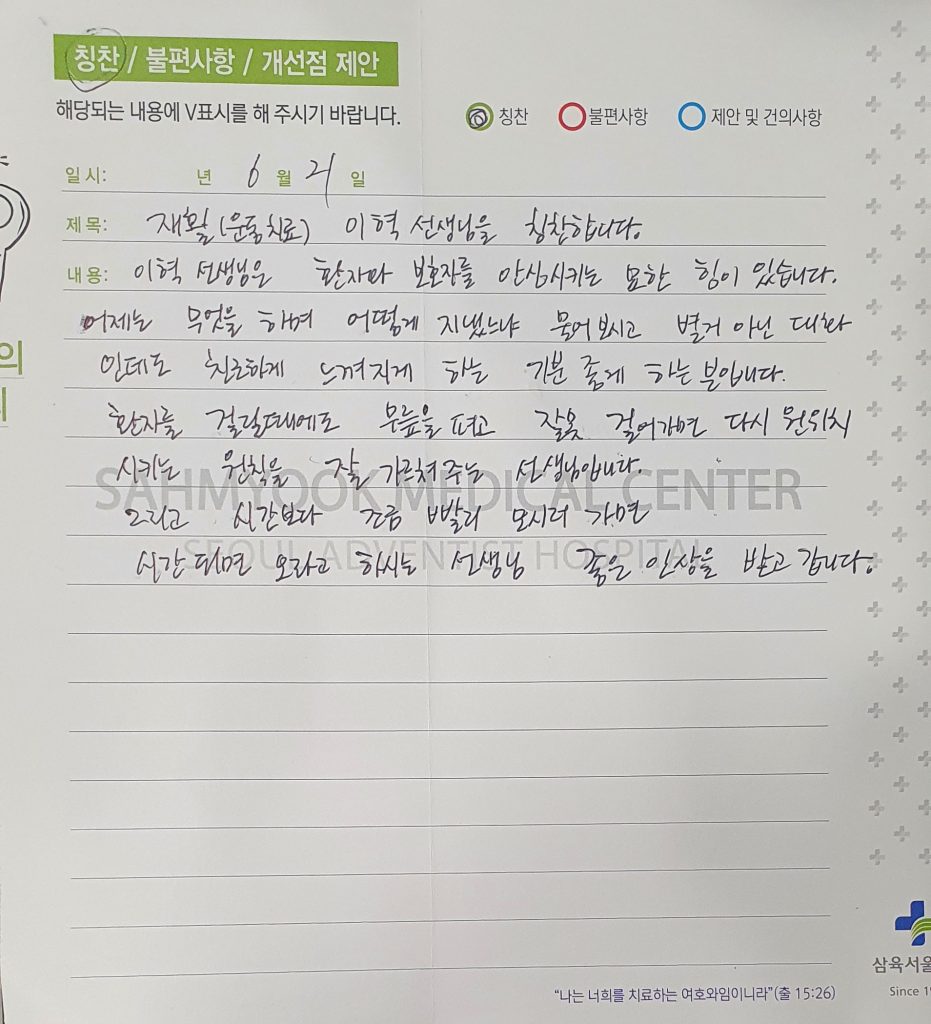 칭찬 / 불편사항 / 개선점 제안
해당되는 내용에 V표시를 해 주시기 바랍니다.
칭찬 불편사항 제안 및 건의사항
일시: 년 6 월 21 일
제목: 재활(운동치료) 이혁 선생님을 칭찬합니다.
내용: 이혁 선생님은 환자와 보호자를 안심시키는 묘한 힘이 있습니다.
어제는 무엇을 하며 어떻게 지냈느냐 물어보시고 별거 아닌 대화
인데도 친근하게 느껴지게 하는 기분 좋게 하는 분입니다.
환자를 걸릴때에도 무릎을 펴고 잘못 걸어가면 다시 원위치
시키는 원칙을 잘 가르쳐주는 선생님입니다.
SAHMYOOK MEDICAL CENTER
그리고 시간보다 조금 빨리 모시러 가면
SEOUL ADVENTIST HOSPITAL
시간되면 오라고 하시는 선생님 좋은 인상을 받고 갑니다.
의
"나는 너희를 치료하는 여호와임이니라"(출 15:26)
삼육서울
Since 19